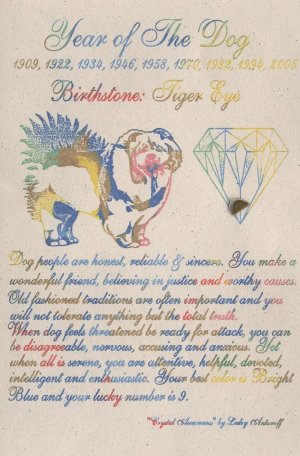 Year of The Dog
1909, 1922, 1934, 1946, 1958, 1970, 1982, 1994, 2006
Birthstone: Tiger Eye
Dog people are honest, reliable & sincere. You make a
wonderful friend, believing in justice and worthy causes.
Old fashioned traditions are often important and you
will not tolerate anything but the total truth.
When dog feels threatened be ready for attack, you can
be disagreeable, nervous, accusing and anxious. Yet
when all is serene, you are attentive, helpful, devoted,
intelligent and enthusiastic. Your best color is Bright
Blue and your lucky number is 9.
"Crystal Awareness" by Luby